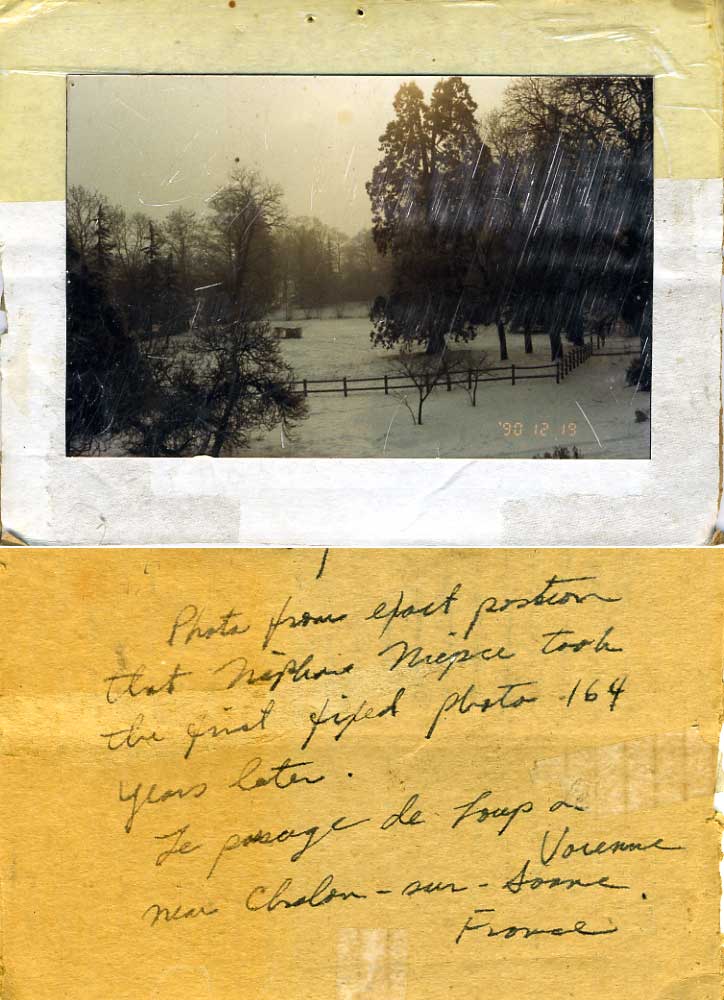 '90 12 19
Photo from exact position
that Niepce took
the first fixed photo 164
years later.
Le pasage de Loup de
Varenne
near Chalon-sur-Soane.
France